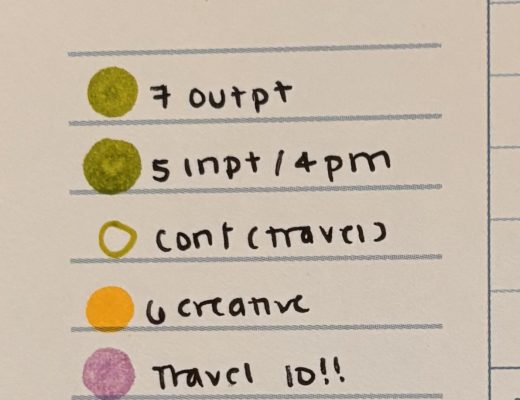 7 outpt
5 inpt / 4 pm
conf (travel)
6 creative
Travel 10!!